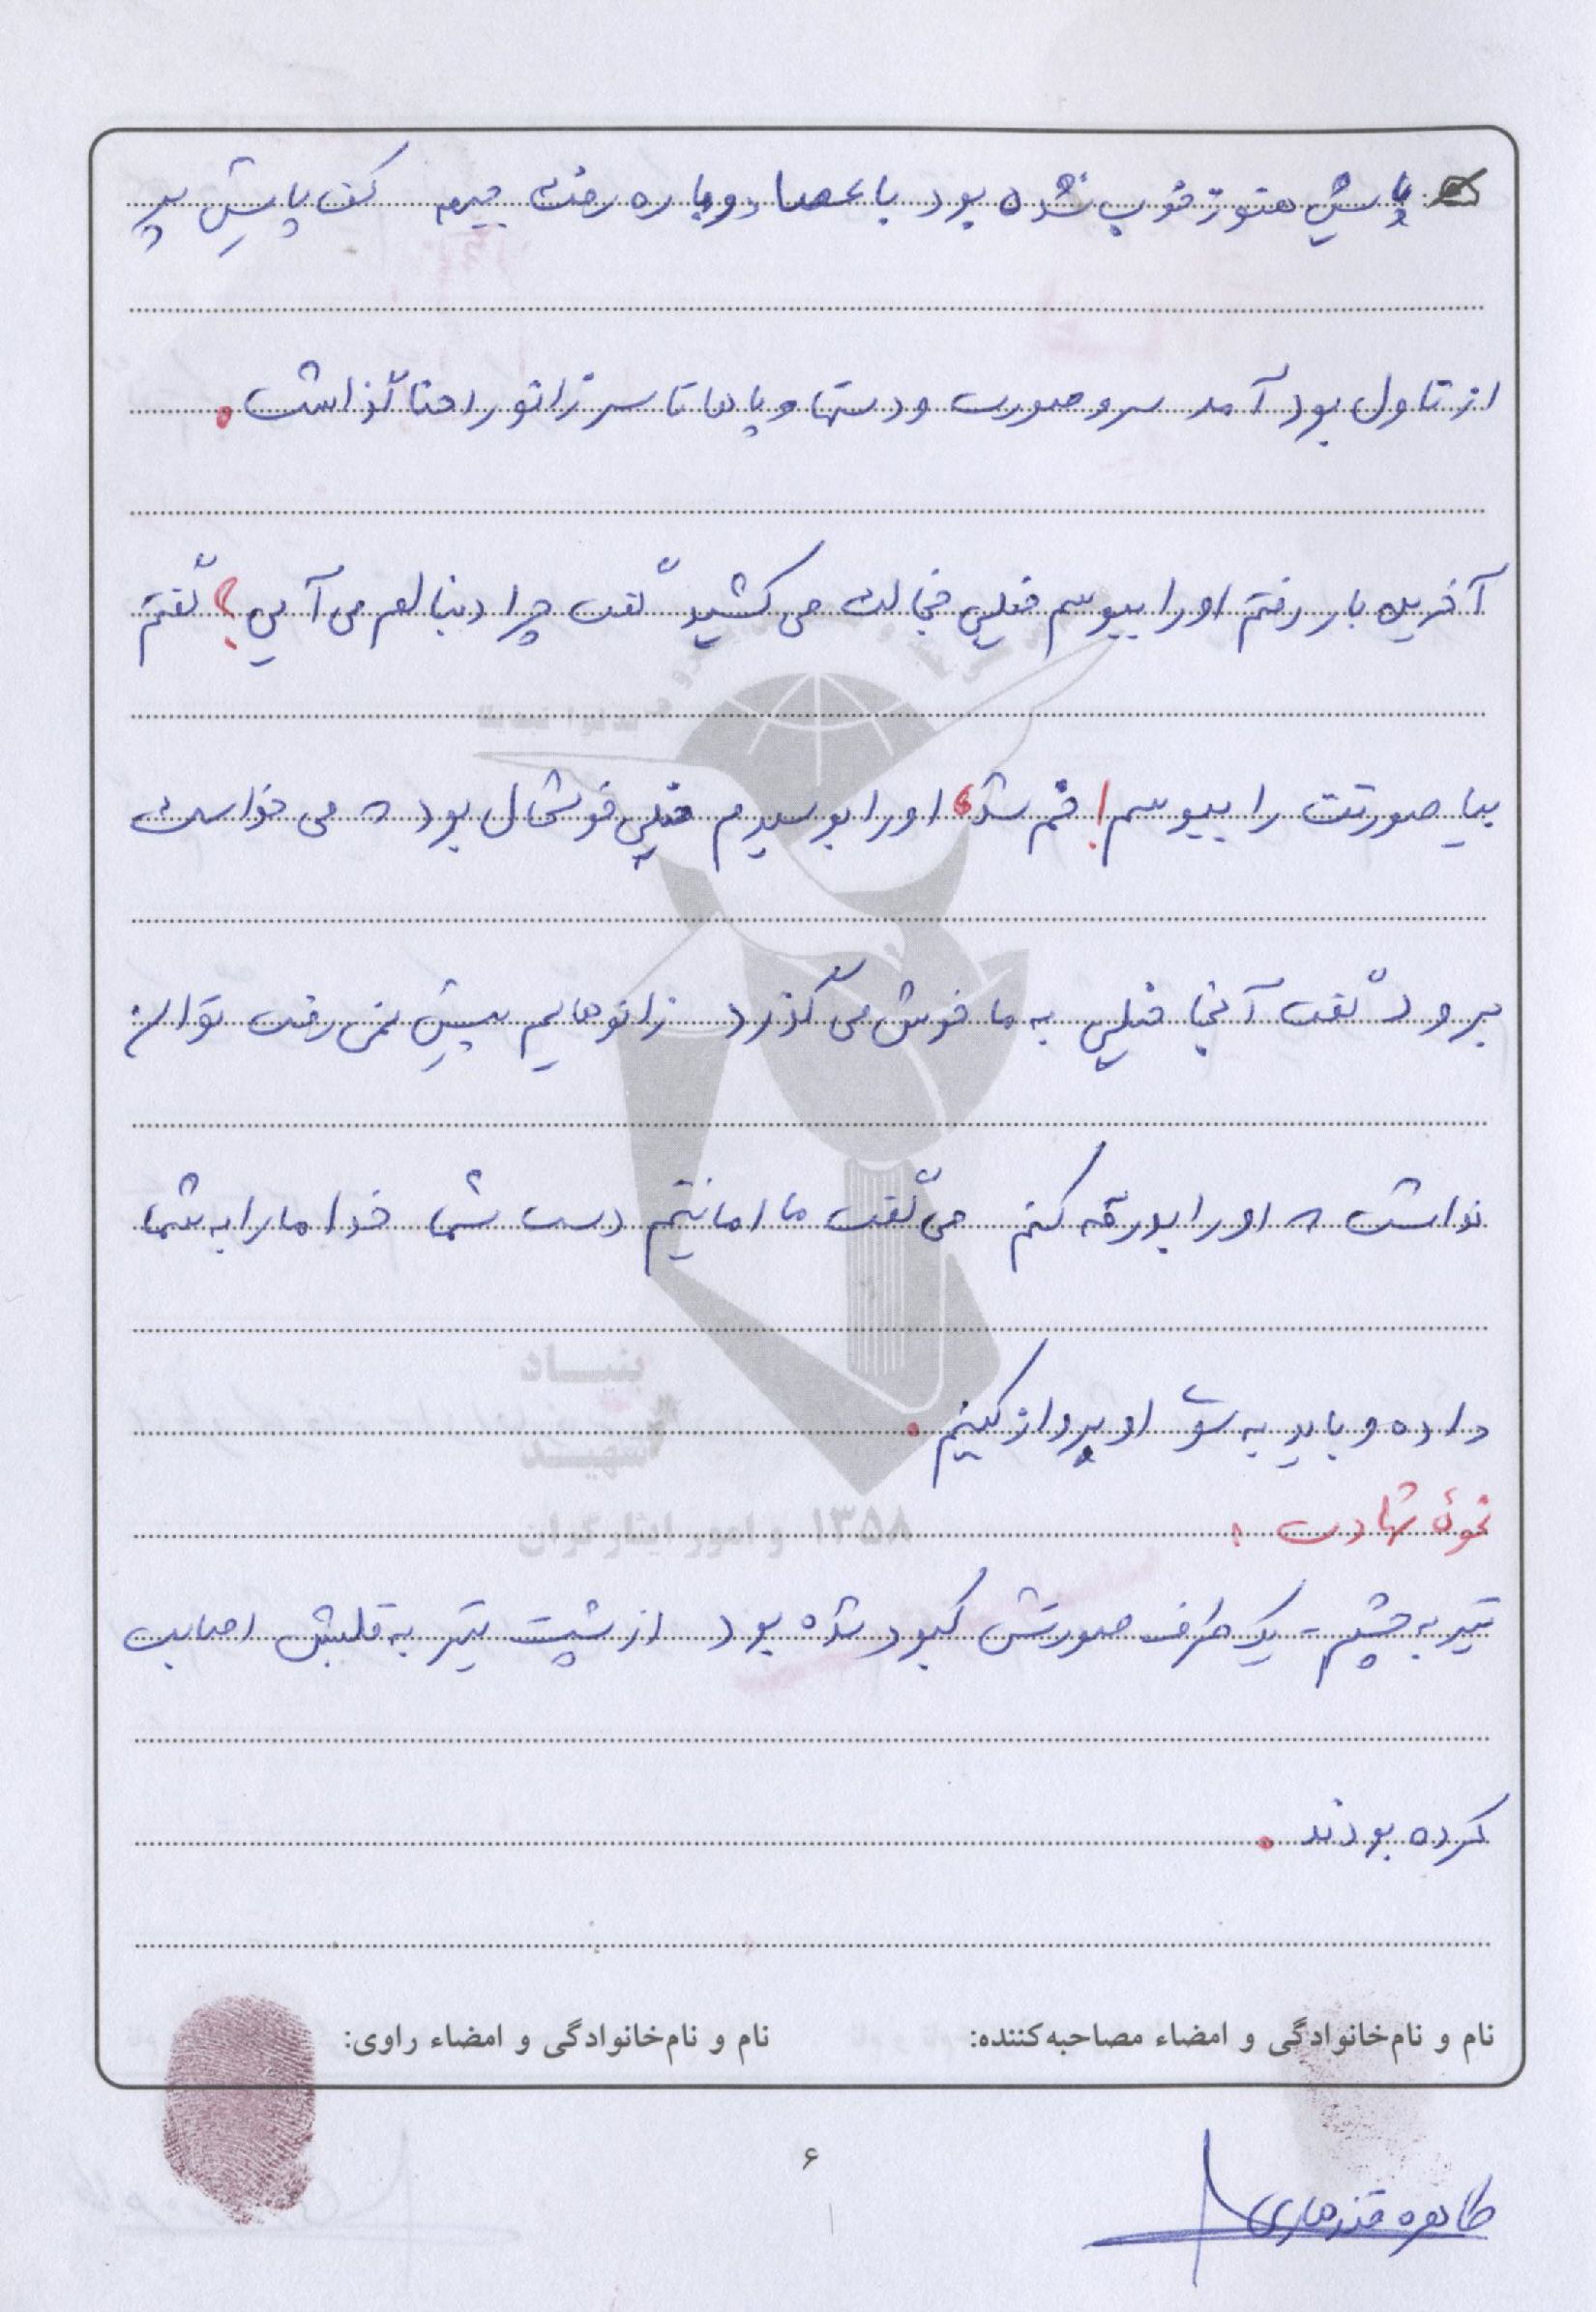 پایش هنوز خوب نشده بود با عصا دوباره رفت جبهه کف پایش پر
از تاول بود آمد سر و صورت و دستها و پاها تا سر زانو را حنا گذاشت.
آخرین بار رفتم او را ببوسم خیلی خجالت می کشید گفت چرا دنبالم می آیی؟ گفتم
بیا صورتت را ببوسم! خم شد، او را بوسیدم خیلی خوشحال بود که می خواست
برود گفت آنجا خیلی به ما خوش می گذرد زانوهایم پیش نمی رفت توان
نداشت که او را بدرقه کنم می گفت ما امانتیم دست شما خدا ما را به شما
داده و باید به سوی او پرواز کنیم.
نحوهٔ شهادت:
تیر به چشم - یک طرف صورتش کبود شده بود از پشت تیر به قلبش اصابت
کرده بودند.
بنیاد
شهید
و امور ایثارگران ۱۳۵۸
نام و نام‌خانوادگی و امضاء مصاحبه‌کننده: نام و نام‌خانوادگی و امضاء راوی:
۶
طاهره قندهاری